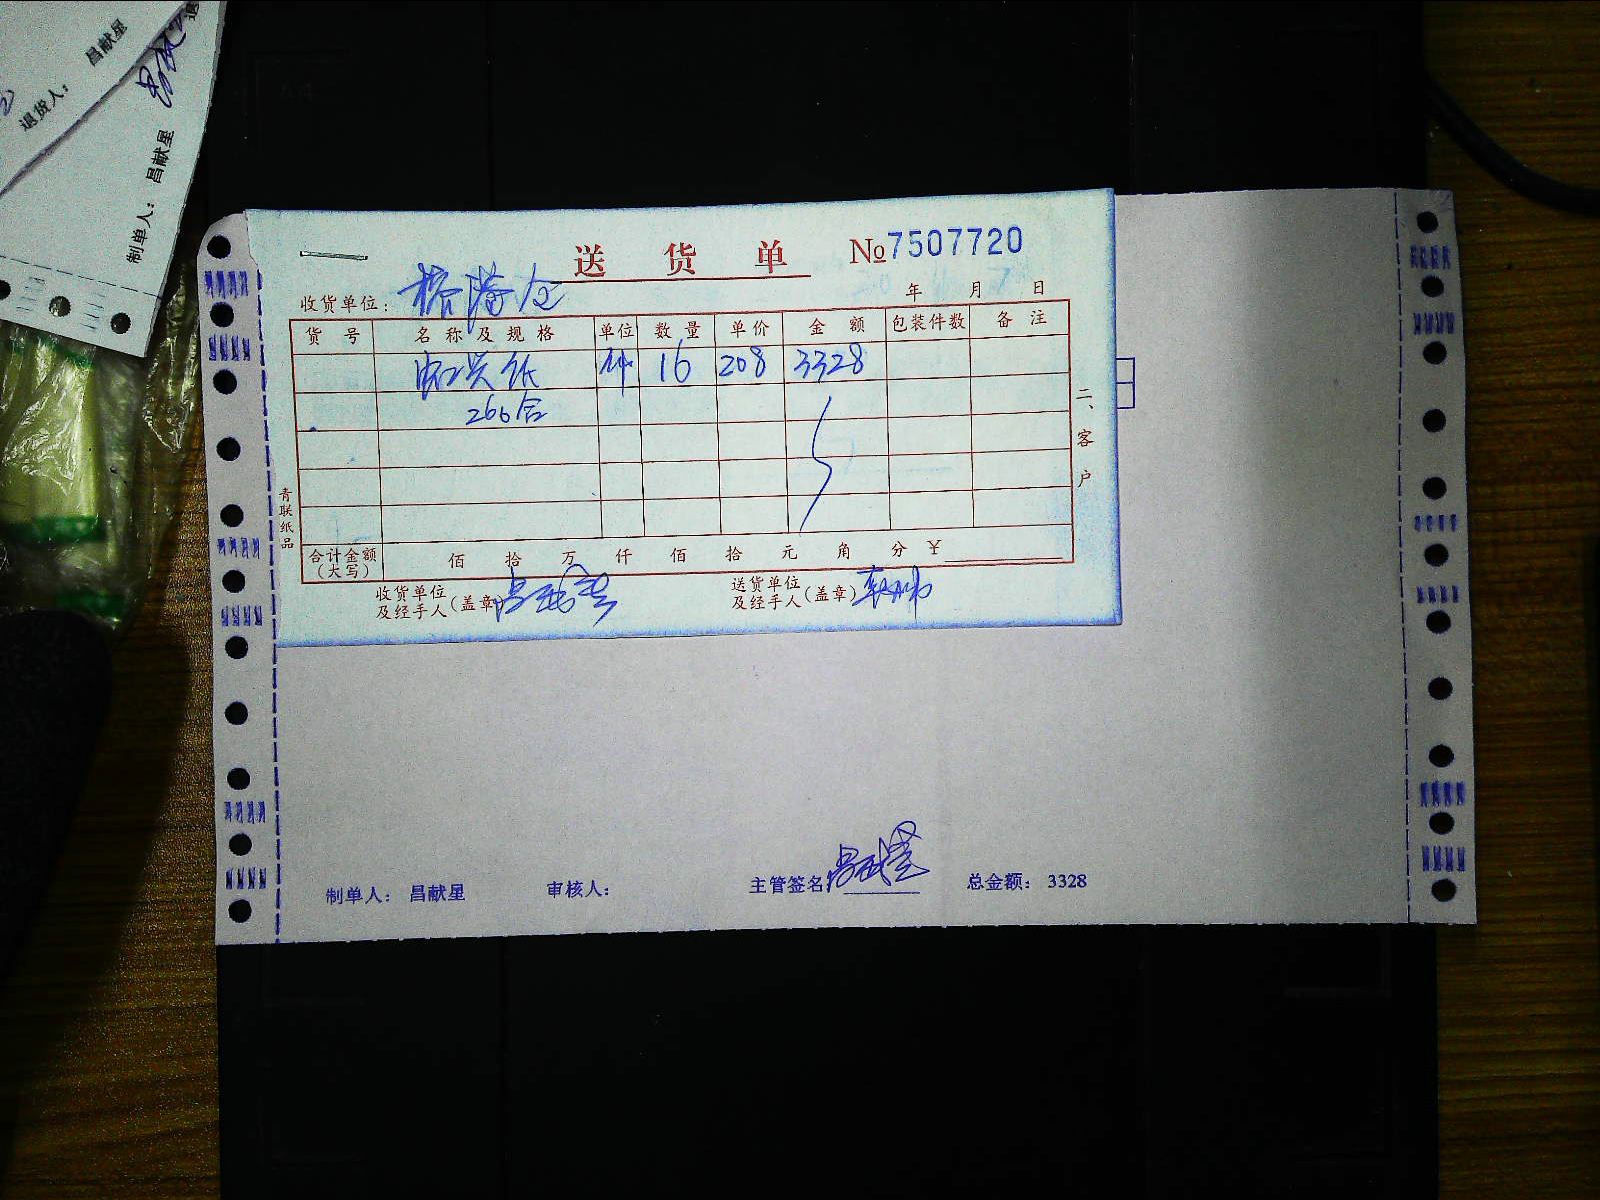 昌献星
退货人：
制单人： 昌献星
送货单 №7507720
收货单位：
年 月 日
货号 名称及规格 单位 数量 单价 金额 包装件数 备注
纸 件 16 208 3328
266
二、客户
青联纸品
合计金额（大写） 佰 拾 万 仟 佰 拾 元 角 分 ￥
收货单位及经手人（盖章）
送货单位及经手人（盖章）
制单人： 昌献星 审核人： 主管签名 总金额： 3328